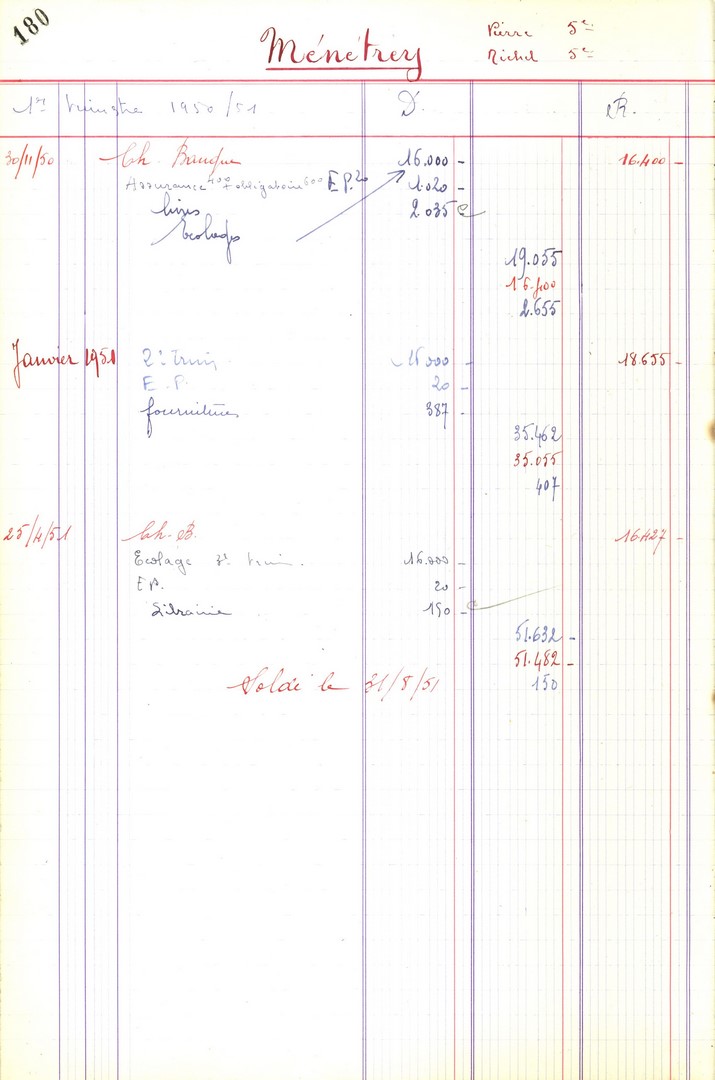 180
Ménétrey
Pierre 5e
Michel 5e
1er trimestre 1950/51 D. R.
30/11/50 Ch. Banque 16.000 - 16.400 -
Assurance 400 + obligatoire 600 E P. 20 1.020 -
livres 2.035
Ecolages
19.055
16.400
2.655
Janvier 1951 2e trim. 16.000 18.655 -
E. P. 20 -
fournitures 387 -
35.462
35.055
407
25/4/51 Ch. B. 16.427 -
Ecolage 3e trim. 16.000 -
E P. 20 -
Librairie 150 -
51.632 -
51.482 -
Soldé le 31/8/51 150